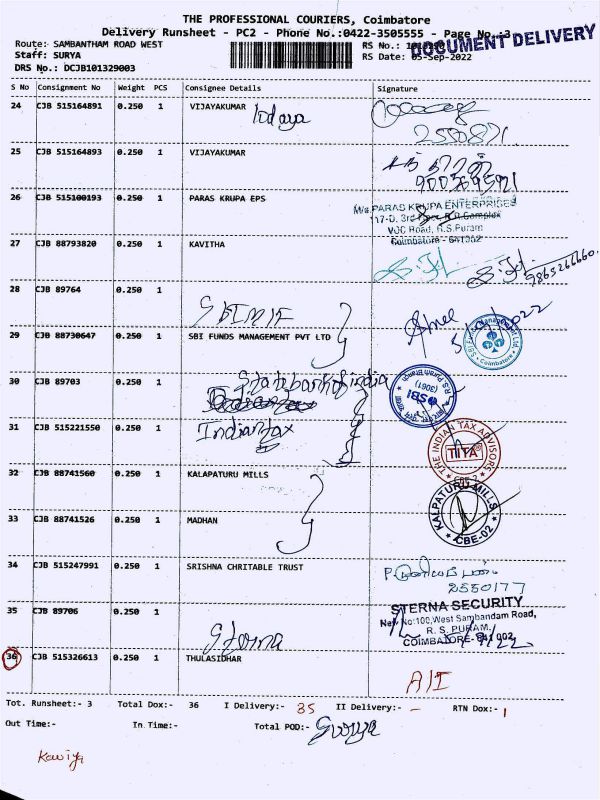 THE PROFESSIONAL COURIERS, Coimbatore
Delivery Runsheet - PC2 - Phone No.:0422-3505555 - Page No. 3
DOCUMENT DELIVERY
Route: SAMBANTHAM ROAD WEST
RS No.:
Staff: SURYA
RS Date: 05-Sep-2022
DRS No.: DCJB101329003
S No Consignment No Weight PCS Consignee Details Signature
24 CJB 515164891 0.250 1 VIJAYAKUMAR
25 CJB 515164893 0.250 1 VIJAYAKUMAR
26 CJB 515100193 0.250 1 PARAS KRUPA EPS
M/s.PARAS KRUPA ENTERPRISES
117-D. 3rd Floor, R.R.Complex
VOC Road, R.S.Puram
Coimbatore - 641002
27 CJB 88793820 0.250 1 KAVITHA
9865266660
28 CJB 89764 0.250 1
SBIMF
29 CJB 88730647 0.250 1 SBI FUNDS MANAGEMENT PVT LTD
30 CJB 89703 0.250 1 State bank of india
SBI
31 CJB 515221550 0.250 1 Indian tax
THE INDIAN TAX ADVISORS
TITA
32 CJB 88741560 0.250 1 KALAPATURU MILLS
KALPATURU MILLS
CBE-02
33 CJB 88741526 0.250 1 MADHAN
34 CJB 515247991 0.250 1 SRISHNA CHRITABLE TRUST
2550177
35 CJB 89706 0.250 1
Sterna
STERNA SECURITY
New No:100,West Sambandam Road,
R. S. PURAM,
COIMBATORE-641 002.
36 CJB 515326613 0.250 1 THULASIDHAR
A/I
Tot. Runsheet:- 3 Total Dox:- 36 I Delivery:- 35 II Delivery:- - RTN Dox:- 1
Out Time:- In Time:- Total POD:- Surya
Kaviya